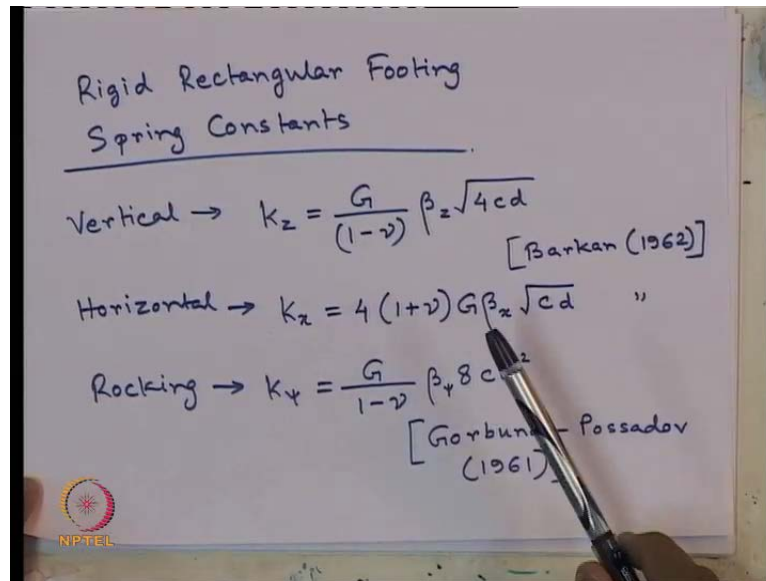 Rigid Rectangular Footing
Spring Constants
Vertical → k_z = G/(1-ν) β_z √4cd
[Barkan (1962)]
Horizontal → K_x = 4 (1+ν) G β_x √cd "
Rocking → K_ψ = G/1-ν β_ψ 8 c ²
[Gorbun - Possadov
(1961)
NPTEL